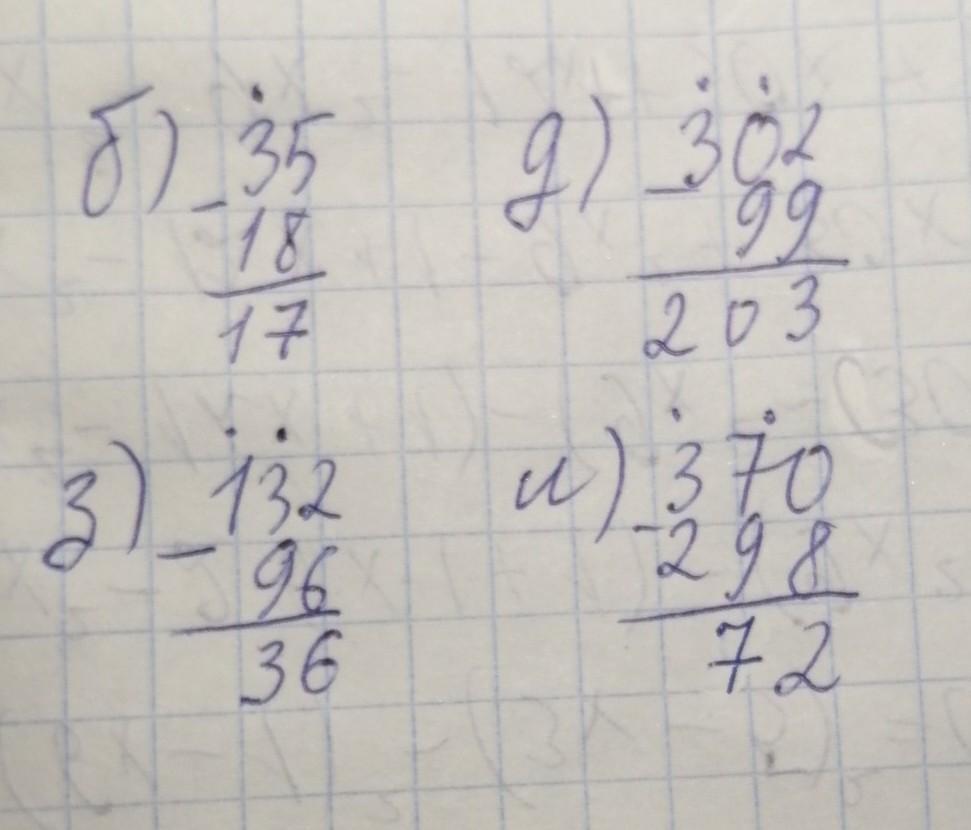 б) 35
- 18
17
д) 302
- 99
203
з) 132
- 96
36
и) 370
- 298
72